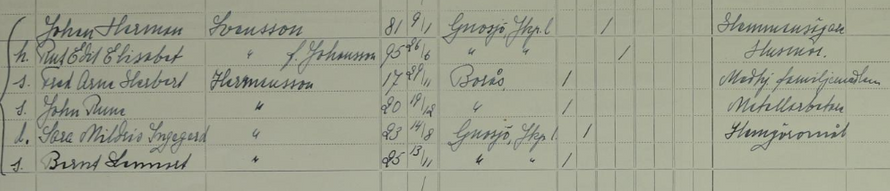 Johan Herman Svensson 81 9/1 Gnosjö, Jkp.l. / Hemmansägare
h. Rut Edit Elisabet " f. Johansson 95 26/6 " " / Husmor.
s. Fred Arne Herbert Hermansson 17 28/11 Borås, / Medhj. familjemedlem
s. John Rune " 20 19/12 " / Metallarbetare
d. Sara Mildrid Ingegerd " 23 14/8 Gnosjö, Jkp.l. / Hemgöromål
s. Bernt Lennart " 25 13/11 " " /